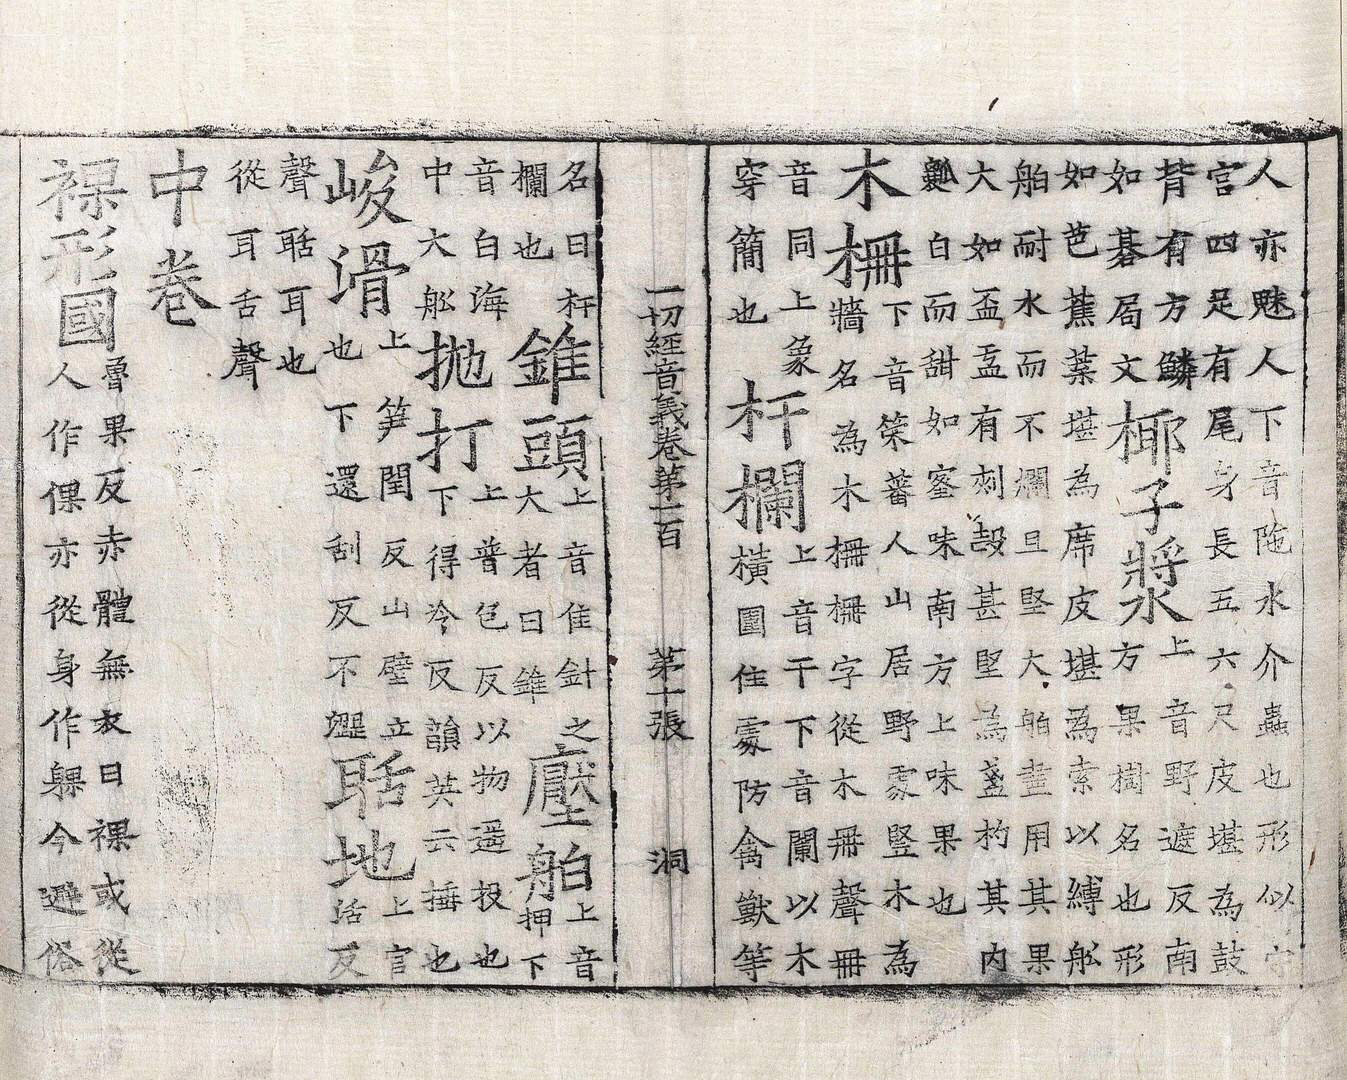 人亦魅人下音陁水介蟲也形似守
宮四足有尾身長五六尺皮堪為鼓
背有方鱗
如碁局文
椰子漿
上音野遮反南
方果樹名也形
如芭蕉葉堪為席皮堪為索以縛舩
舶耐水而不爛且堅大舶盡用其果
大如盃盂有刺㲉甚堅為盞杓其內
瓤白而甜如蜜味南方上味果也
木柵
下音策蕃人山居野䖏竪木為
牆名為木柵柵字從木冊聲冊
音同上象
穿簡也
杆欄
上音干下音闌以木
橫圍住䖏防禽獸等
一切經音義卷第一百 第十張 洞
名曰杆
欄也
錐頭
上音隹針之
大者曰錐
壓舶
上音
押下
音白海
中大舩
拋打
上普包反以物遥投也
下得冷反韻英云捶也
峻滑
上笋閏反山壁立
也下還刮反不歰
聒地
上官
活反
聲聒耳也
從耳舌聲
中卷
裸形國
魯果反赤體無衣曰裸或從
人作倮亦從身作躶今避俗